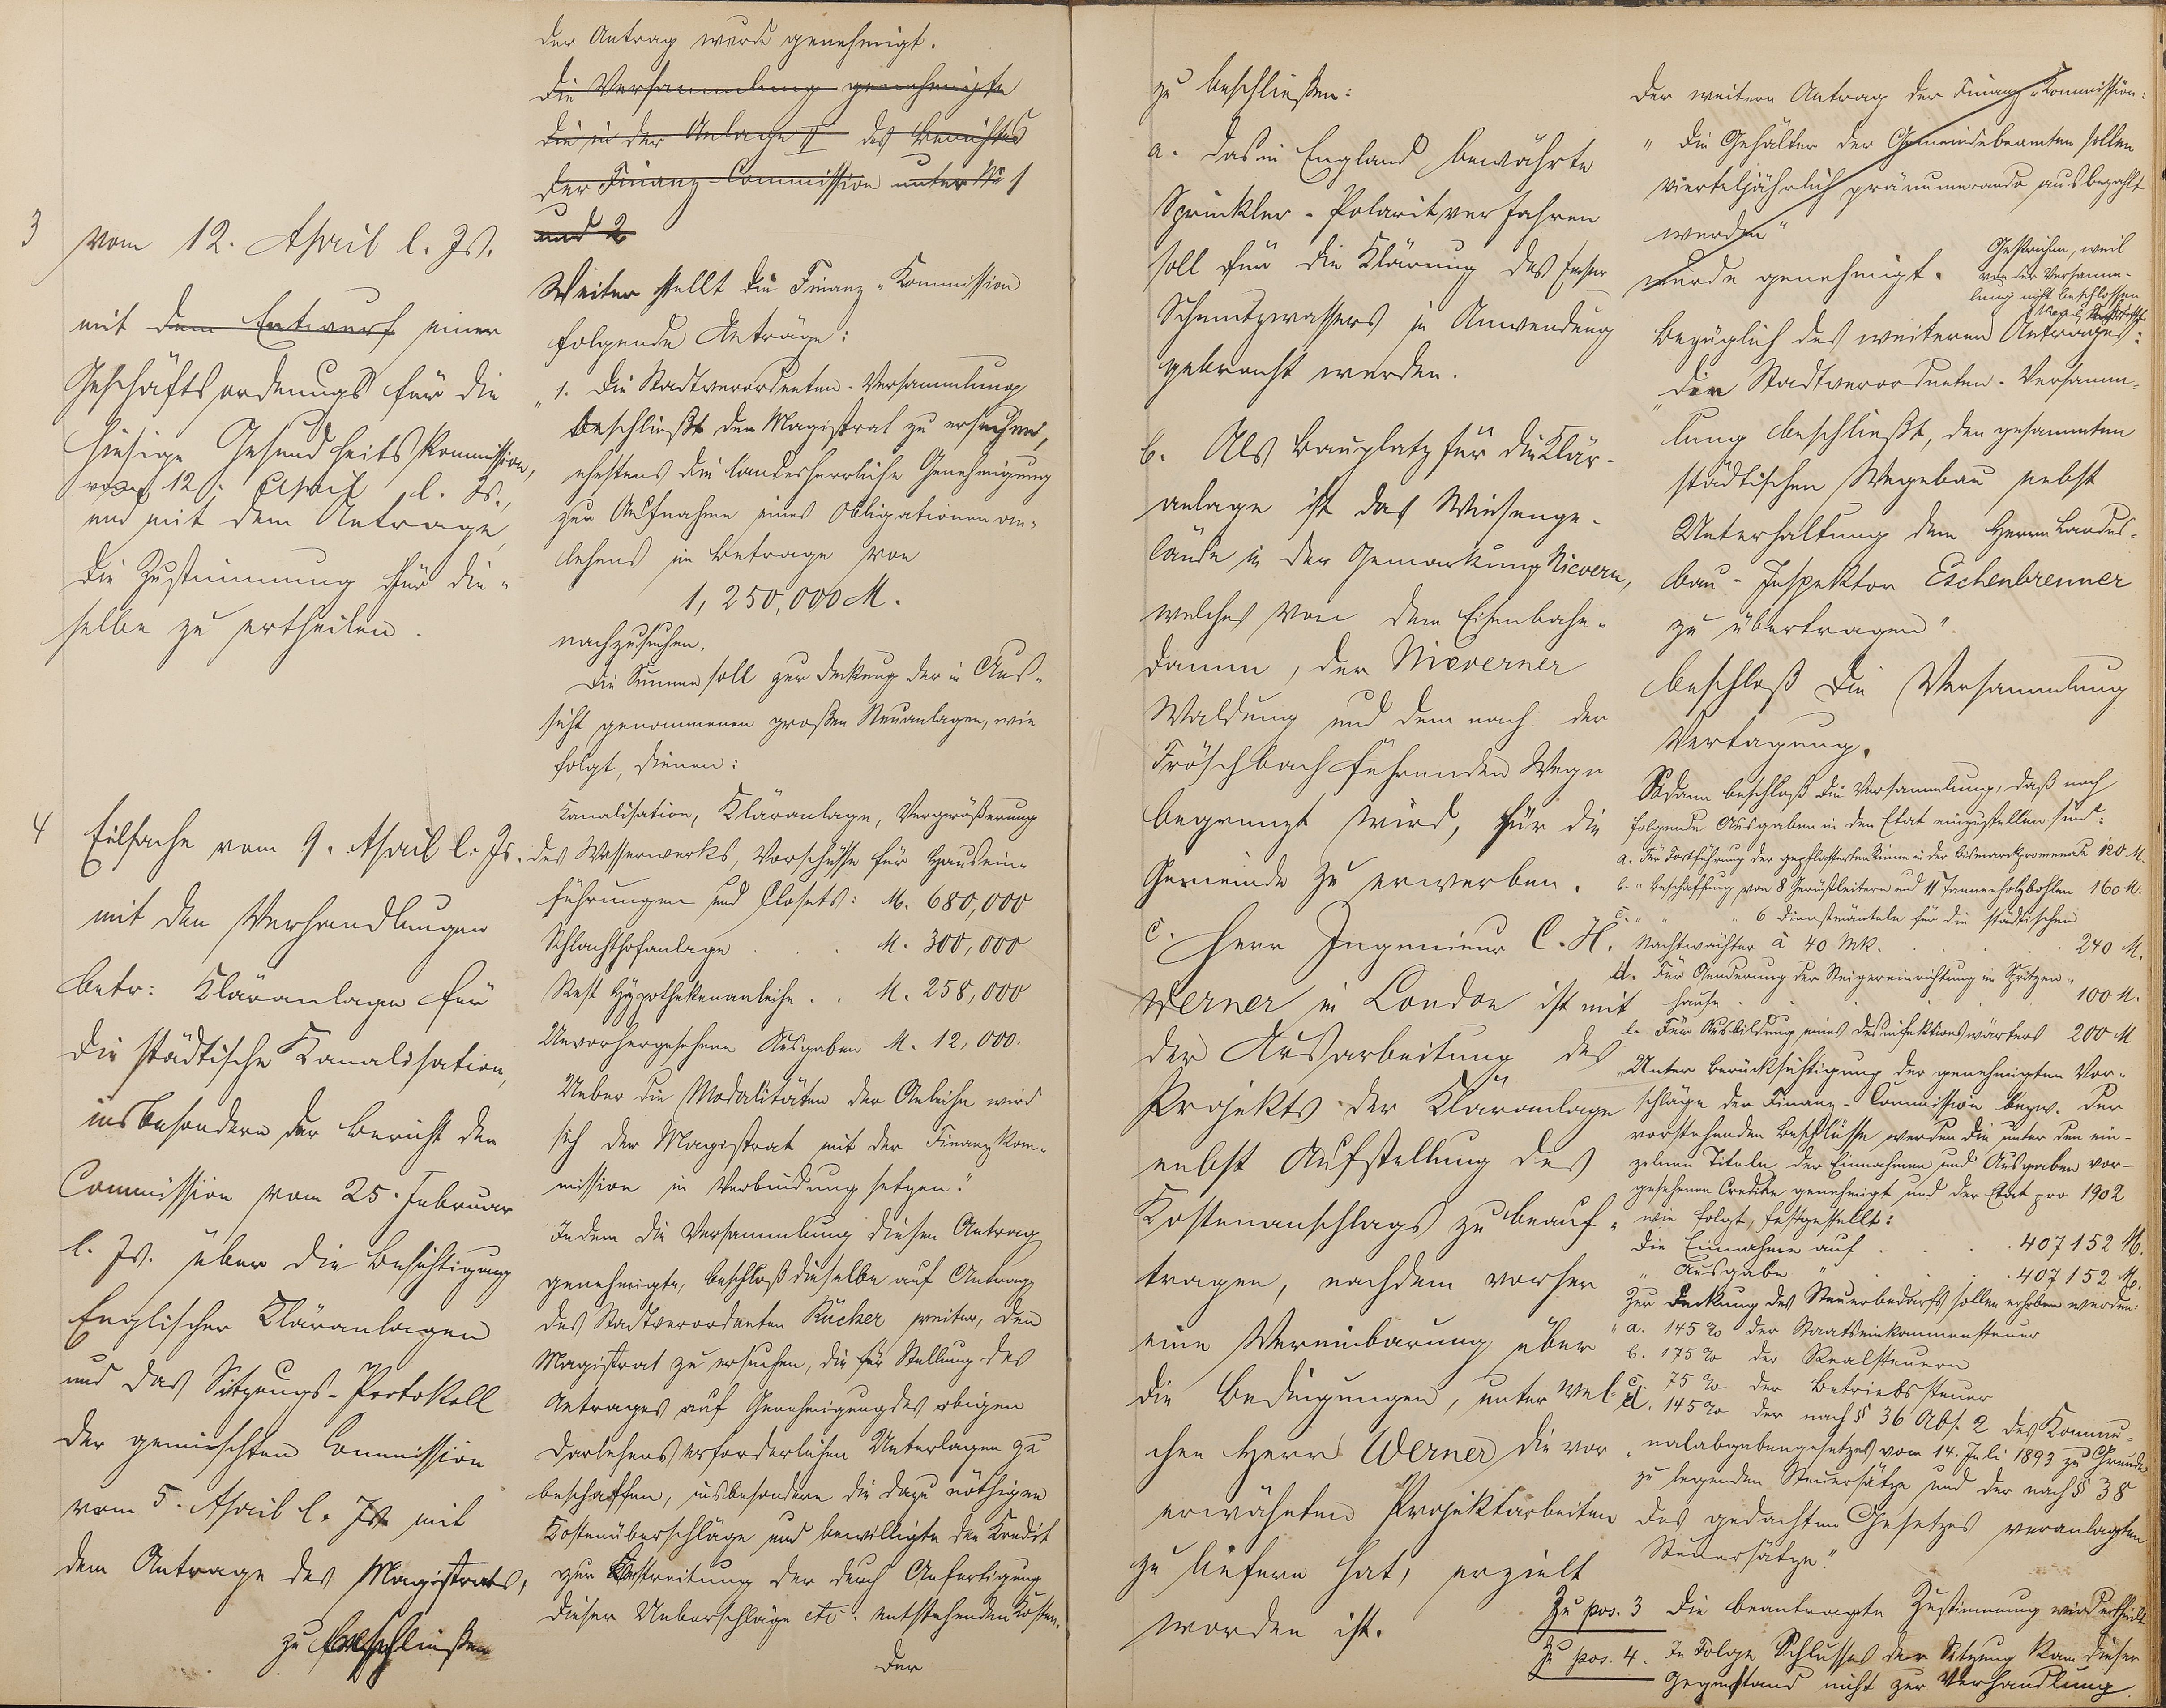 3 vom 12. April l. Js.
mit dem Entwurf einer
Geschäftsordnungs für die
hiesige Gesundheitskommission,
vom 12. April l. Js.,
und mit dem Antrage,
die Zustimmung für die-
selbe zu ertheilen.
4 Eilsache vom 9. April l. Js.
mit den Verhandlungen
betr: Kläranlage für
die städtische Kanalisation,
insbesondere der Bericht der
Commission vom 25. Februar
l. Js. über die Besichtigung
Englischer Kläranlagen
und das Sitzungs-Protokoll
der gemischten Commission
vom 5. April l. Js. mit
dem Antrage des Magistrats,
zu beschließen
der Antrag wurde genehmigt.
Die Versammlung genehmigte
die in der Anlage II des Berichtes
der Finanz-Commission unter No 1
und 2
Weiter stellt die Finanz-Kommission
folgende Anträge:
„1. Die Stadtverordneten-Versammlung
beschließt den Magistrat zu ersuchen,
ehestens die landesherrliche Genehmigung
zur Aufnahme eines Obligationenan-
lehens im Betrage von
1,250,000 M.
nachzusuchen.
Die Summe soll zur Deckung der in Aus-
sicht genommenen großen Neuanlagen, wie
folgt, dienen:
Kanalisation, Kläranlage, Vergrößerung
des Wasserwerks, Vorschüsse für Hausein-
führungen und Closets: M. 680,000
Schlachthofanlage . . M. 300,000
Rest Hypothekenanleihe . . M. 258,000
Unvorhergesehene Ausgaben M. 12,000.
Ueber die Modalitäten der Anleihe wird
sich der Magistrat mit der Finanzkom-
mission in Verbindung setzen."
Indem die Versammlung diesen Antrag
genehmigte, beschloß dieselbe auf Antrag
des Stadtverordneten Rücker weiter, den
Magistrat zu ersuchen, die für Stellung des
Antrages auf Genehmigung des obigen
Darlehens erforderlichen Unterlagen zu
beschaffen, insbesondere die dazu nöthigen
Kostenüberschläge und bewilligte den Kredit
zur Bestreitung der durch Anfertigung
dieser Ueberschläge etc. entstehenden Kosten.
Der
zu beschließen:
a. das in England bewährte
Sprinkler-Polaritverfahren
soll für die Klärung des Emser
Schmutzwassers in Anwendung
gebracht werden.
b. Als Bauplatz für die Klär-
anlage ist das Wiesenge-
lände in der Gemarkung Nievern,
welches von dem Eisenbahn-
damm, der Nieverner
Waldung und dem nach der
Fröschbach führenden Wege
begrenzt wird, für die
Gemeinde zu erwerben.
c. Herr Ingenieur C. H.
Werner in London ist mit
der Ausarbeitung des
Projekts der Kläranlage
nebst Aufstellung des
Kostenanschlags zu beauf-
tragen, nachdem vorher
eine Vereinbarung über
die Bedingungen, unter wel-
chen Herr Werner die vor-
erwähnten Projektarbeiten
zu liefern hat, erzielt
worden ist.
Der weitere Antrag der Finanz-Kommission:
„Die Gehälter der Gemeindebeamten sollen
vierteljährlich pränumerando ausbezahlt
werden"
wurde genehmigt.
Gestrichen, weil
von der Versamm-
lung nicht beschlossen
Bezüglich des weiteren Antrages:
„Die Stadtverordneten-Versamm-
lung beschließt, den gesammten
städtischen Wegebau nebst
Unterhaltung dem Herrn Landes-
bau-Inspektor Eschenbrenner
zu übertragen"
beschloß die Versammlung
Vertagung.
Sodann beschloß die Versammlung, daß noch
folgende Ausgaben in den Etat einzustellen sind:
a. Für Fortführung der gepflasterten Rinne in der Bismarckpromenade 120 M.
b. " Beschaffung von 8 Gerüstleitern und 11 Tannenholzbohlen 160 M.
c. " " " 6 Dienstmänteln für die städtischen
Nachtwächter à 40 Mk. . . . 240 M.
d. Für Aenderung der Steigereinrichtung im Spritzen-
hause . . . . 100 M.
e. Für Ausbildung eines Desinfektionswärters 200 M
„Unter Berücksichtigung der genehmigten Vor-
schläge der Finanz-Commission bezw. der
vorstehenden Beschlüsse werden die unter den ein-
zelnen Titeln der Einnahmen und Ausgaben vor-
gesehenen Credite genehmigt und der Etat pro 1902
wie folgt, festgestellt:
die Einnahme auf . . . 407152 M.
„ Ausgabe „ . . . 407152 M.
Zur Deckung des Steuerbedarfs sollen erhoben werden:
a. 145% der Staatseinkommensteuer
b. 175% der Realsteuern
c. 75% der Betriebssteuer
d. 145% der nach § 36 Abs. 2 des Kommu-
nalabgabengesetzes vom 14. Juli 1893 zu Grunde
zu legenden Steuersätze und der nach § 38
des gedachten Gesetzes veranlagten
Steuersätze."
Zu pos. 3 Die beantragte Zustimmung wird ertheilt
Zu pos. 4. In Folge Schlusses der Sitzung kam dieser
Gegenstand nicht zur Verhandlung